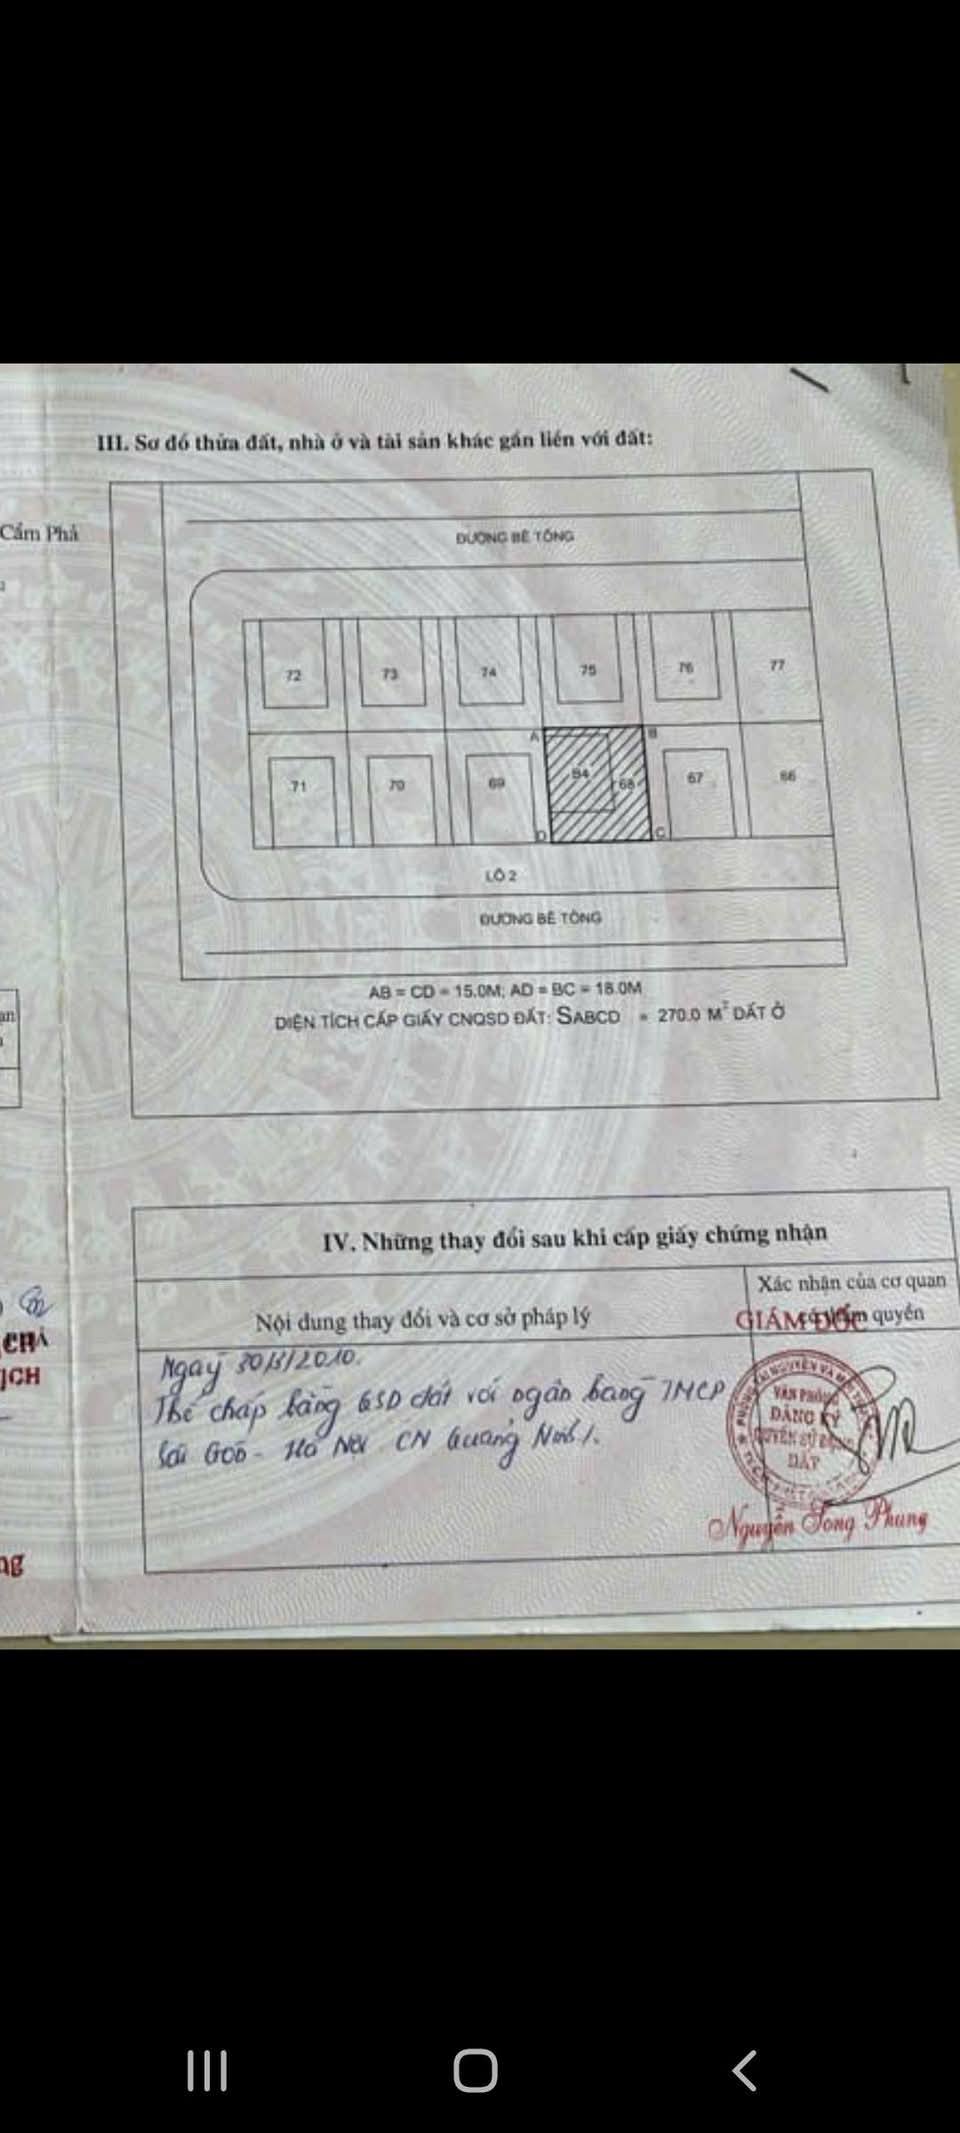 III. Sơ đồ thửa đất, nhà ở và tài sản khác gắn liền với đất:
Cẩm Phả
ĐƯỜNG BÊ TÔNG
72 73 74 75 76 77
A B
71 70 69 94 68 67 66
D C
LÔ 2
ĐƯỜNG BÊ TÔNG
AB = CD = 15.0M; AD = BC = 18.0M
DIỆN TÍCH CẤP GIẤY CNQSD ĐẤT: SABCD = 270.0 M² ĐẤT Ở
IV. Những thay đổi sau khi cấp giấy chứng nhận
Nội dung thay đổi và cơ sở pháp lý
Xác nhận của cơ quan
có thẩm quyền
GIÁM ĐỐC
Ngày 30/3/2010.
Thế chấp bằng QSD đất với ngân hàng TMCP
Sài Gòn - Hà Nội CN Quảng Ninh/.
VĂN PHÒNG
ĐĂNG KÝ
QUYỀN SỬ DỤNG
ĐẤT
Nguyễn Song Phung